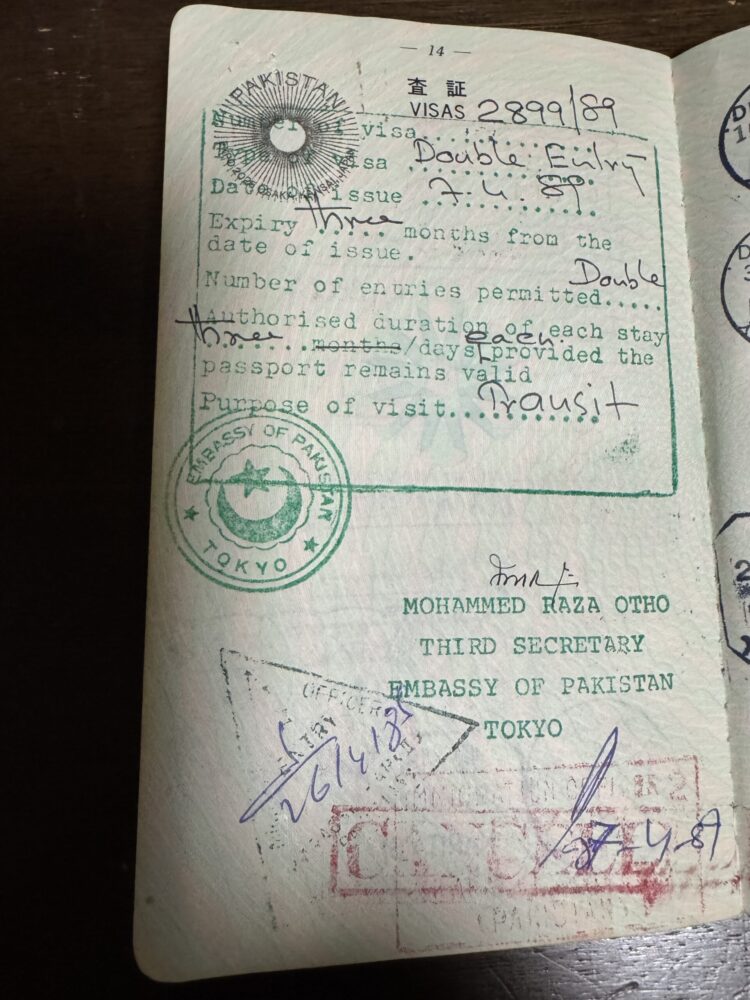 — 14 —
査 証
VISAS 2899/89
PAKISTAN
EXPO 2025 OSAKA, KANSAI, JAPAN
Number of visa..........
Type of visa Double Entry
Date of issue 7-4-89
Expiry three months from the
date of issue.
Number of entries permitted Double
Authorised duration of each stay
three months/days each provided the
passport remains valid
Purpose of visit..Transit
EMBASSY OF PAKISTAN
TOKYO
MOHAMMED RAZA OTHO
THIRD SECRETARY
EMBASSY OF PAKISTAN
TOKYO
OFFICER
ENTRY
26/4/89
IMMIGRATION OFFICER
CANCELLED
-4-89
(PAKISTAN)